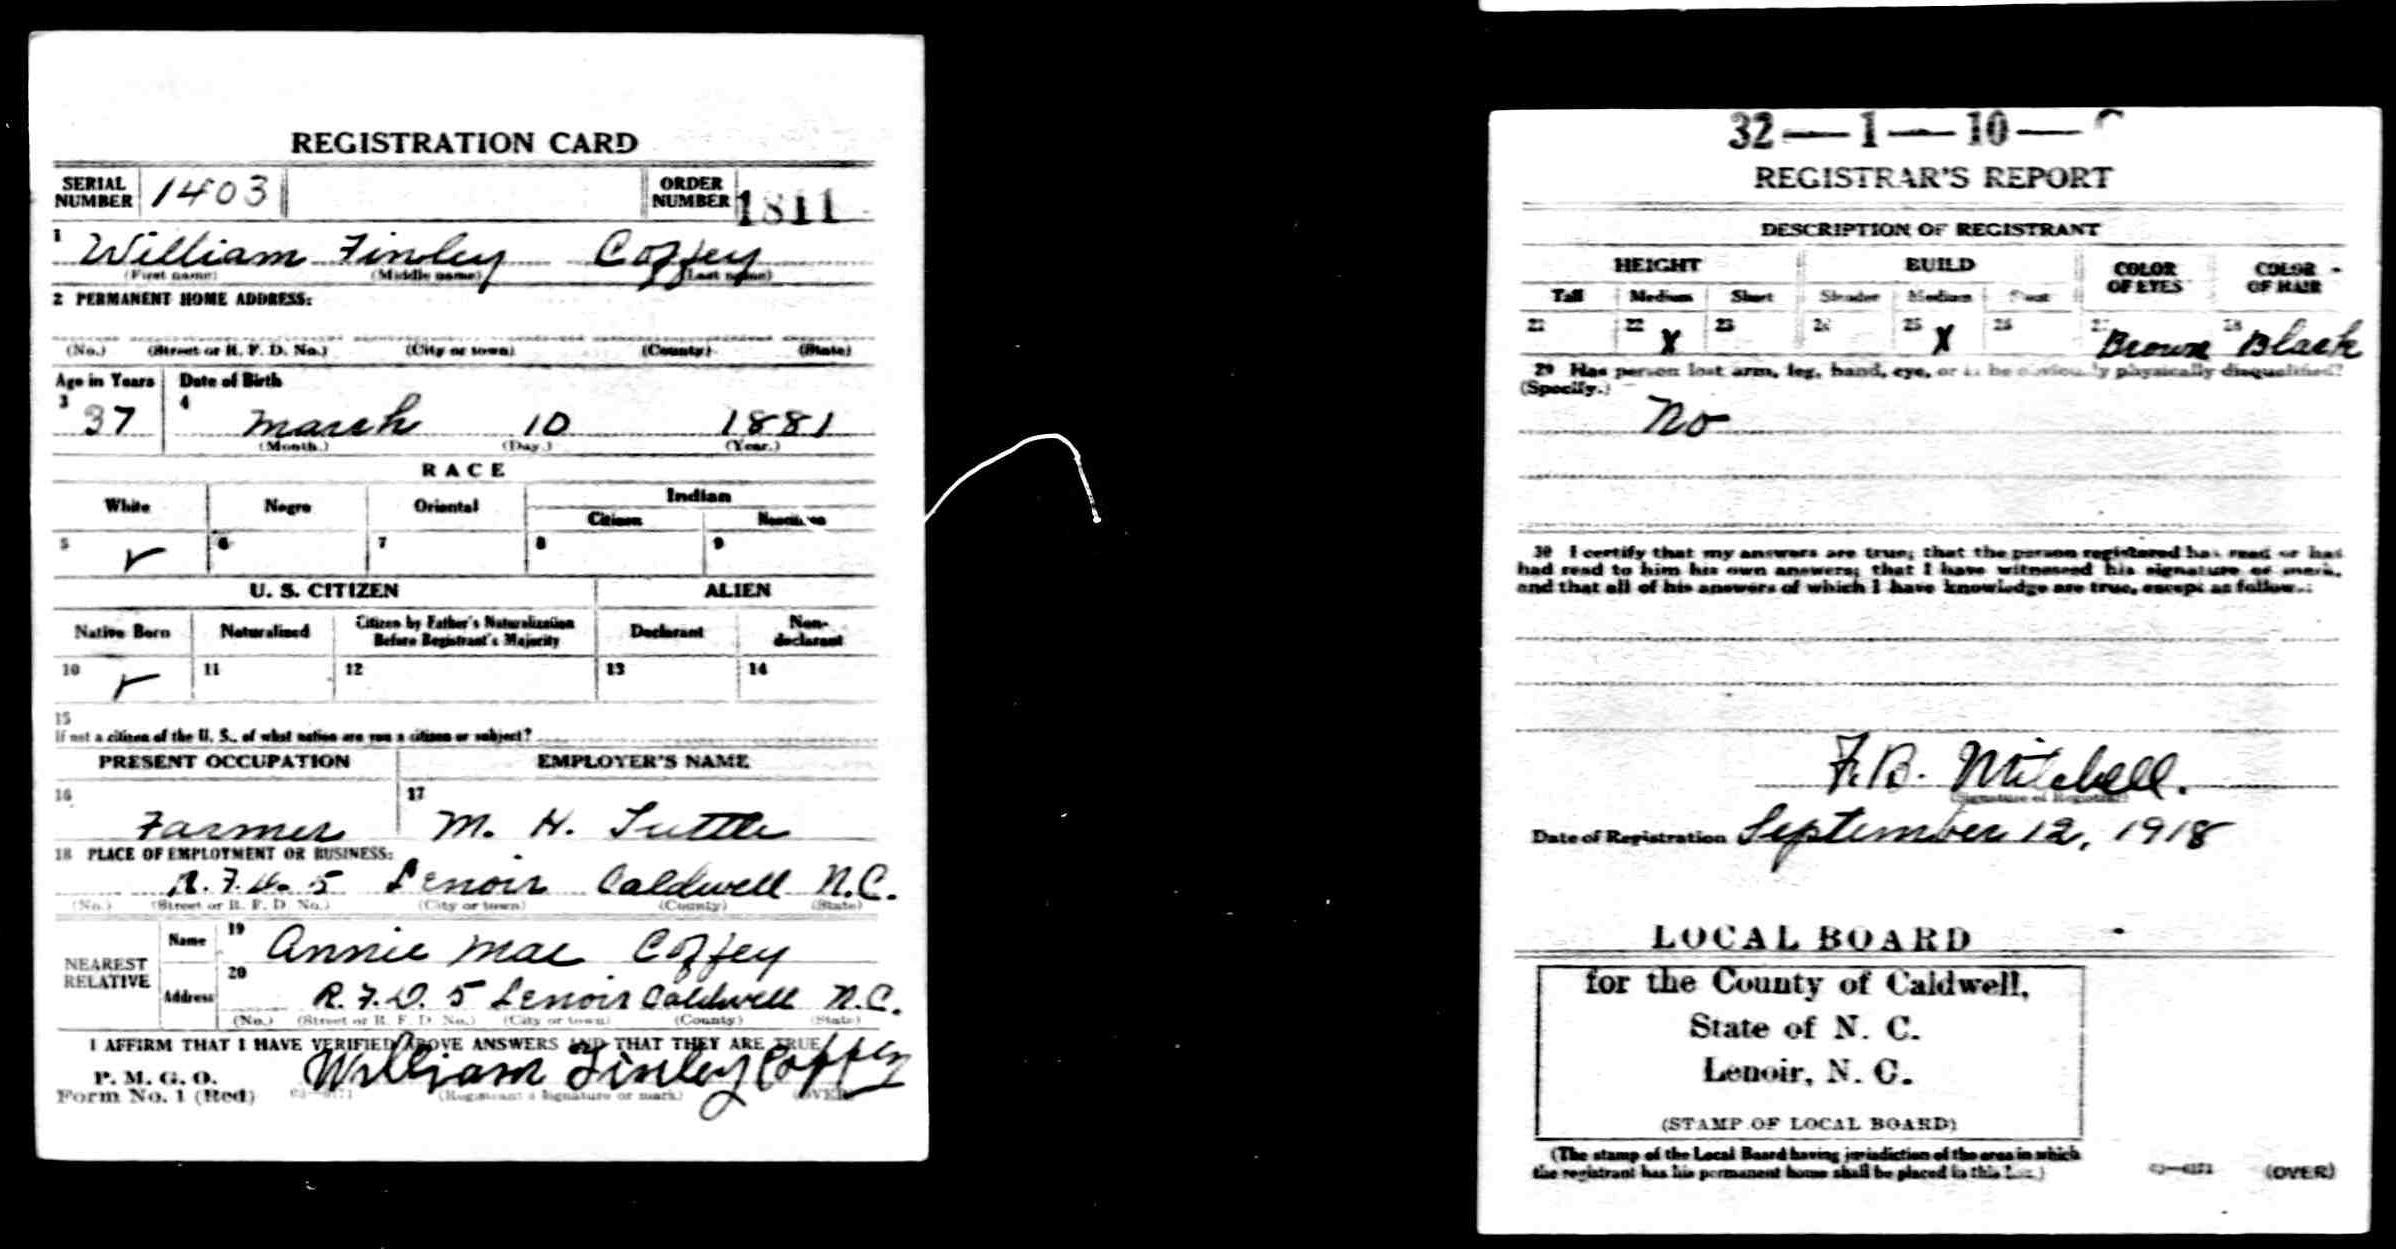 REGISTRATION CARD
SERIAL NUMBER 1403 ORDER NUMBER 1811
1 William Finley Coffey
(First name) (Middle name) (Last name)
2 PERMANENT HOME ADDRESS:
(No.) (Street or R. F. D. No.) (City or town) (County) (State)
Age in Years Date of Birth
3 37 4 March 10 1881
(Month.) (Day.) (Year.)
RACE
White Negro Oriental Indian
Citizen Noncitizen
5 ✓ 6 7 8 9
U. S. CITIZEN ALIEN
Native Born Naturalized Citizen by Father's Naturalization Before Registrant's Majority Declarant Non-declarant
10 ✓ 11 12 13 14
15
If not a citizen of the U. S., of what nation are you a citizen or subject?
PRESENT OCCUPATION EMPLOYER'S NAME
16 Farmer 17 M. H. Tuttle
18 PLACE OF EMPLOYMENT OR BUSINESS:
R. F. D. 5 Lenoir Caldwell N.C.
(No.) (Street or R. F. D. No.) (City or town) (County) (State)
NEAREST RELATIVE Name 19 Annie Mae Coffey
Address 20 R. F. D. 5 Lenoir Caldwell N.C.
(No.) (Street or R. F. D. No.) (City or town) (County) (State)
I AFFIRM THAT I HAVE VERIFIED ABOVE ANSWERS AND THAT THEY ARE TRUE
P. M. G. O.
Form No. 1 (Red) William Finley Coffey
(Registrant's signature or mark) (OVER)
32—1—10—
REGISTRAR'S REPORT
DESCRIPTION OF REGISTRANT
HEIGHT BUILD COLOR OF EYES COLOR OF HAIR
Tall Medium Short Slender Medium Stout
21 22 X 23 24 25 X 26 27 Brown 28 Black
29 Has person lost arm, leg, hand, eye, or is he obviously physically disqualified?
(Specify.)
No
30 I certify that my answers are true; that the person registered has read or has
had read to him his own answers; that I have witnessed his signature or mark,
and that all of his answers of which I have knowledge are true, except as follows:
F. B. Mitchell.
(Signature of Registrar)
Date of Registration September 12, 1918
LOCAL BOARD
for the County of Caldwell,
State of N. C.
Lenoir, N. C.
(STAMP OF LOCAL BOARD)
(The stamp of the Local Board having jurisdiction of the area in which
the registrant has his permanent home shall be placed in this box.)
(OVER)